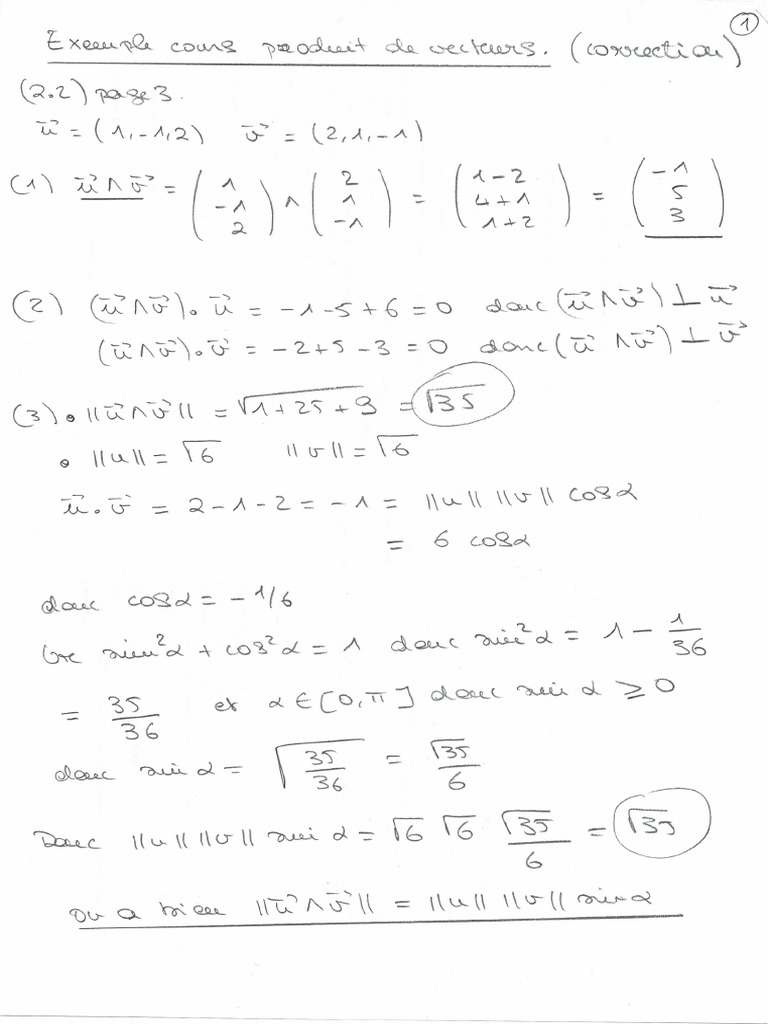 1
Exemple cours produit de vecteurs. (correction)
(2.2) page 3.
u⃗ = (1,-1,2) v⃗ = (2,1,-1)
(1) u⃗ ∧ v⃗ = (1 -1 2) ∧ (2 1 -1) = (1-2 4+1 1+2) = (-1 5 3)
(2) (u⃗ ∧ v⃗). u⃗ = -1-5+6 = 0 donc (u⃗ ∧ v⃗) ⊥ u⃗
(u⃗ ∧ v⃗). v⃗ = -2+5-3 = 0 donc (u⃗ ∧ v⃗) ⊥ v⃗
(3) • ||u⃗ ∧ v⃗|| = √(1+25+9) = √35
• ||u|| = √6 ||v|| = √6
u⃗ . v⃗ = 2-1-2 = -1 = ||u|| ||v|| cosα
= 6 cosα
donc cosα = -1/6
Or sin²α + cos²α = 1 donc sin²α = 1 - 1/36
= 35/36 et α ∈ [0,π] donc sin α ≥ 0
donc sin α = √(35/36) = √35/6
Donc ||u|| ||v|| sin α = √6 √6 √35/6 = √35
On a bien ||u⃗ ∧ v⃗|| = ||u|| ||v|| sin α